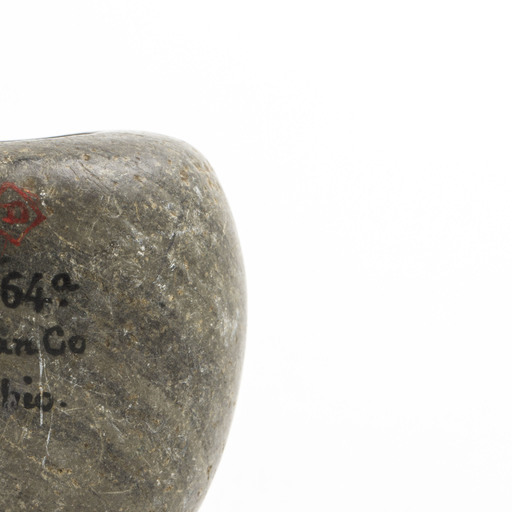 64a
an Co
hio.